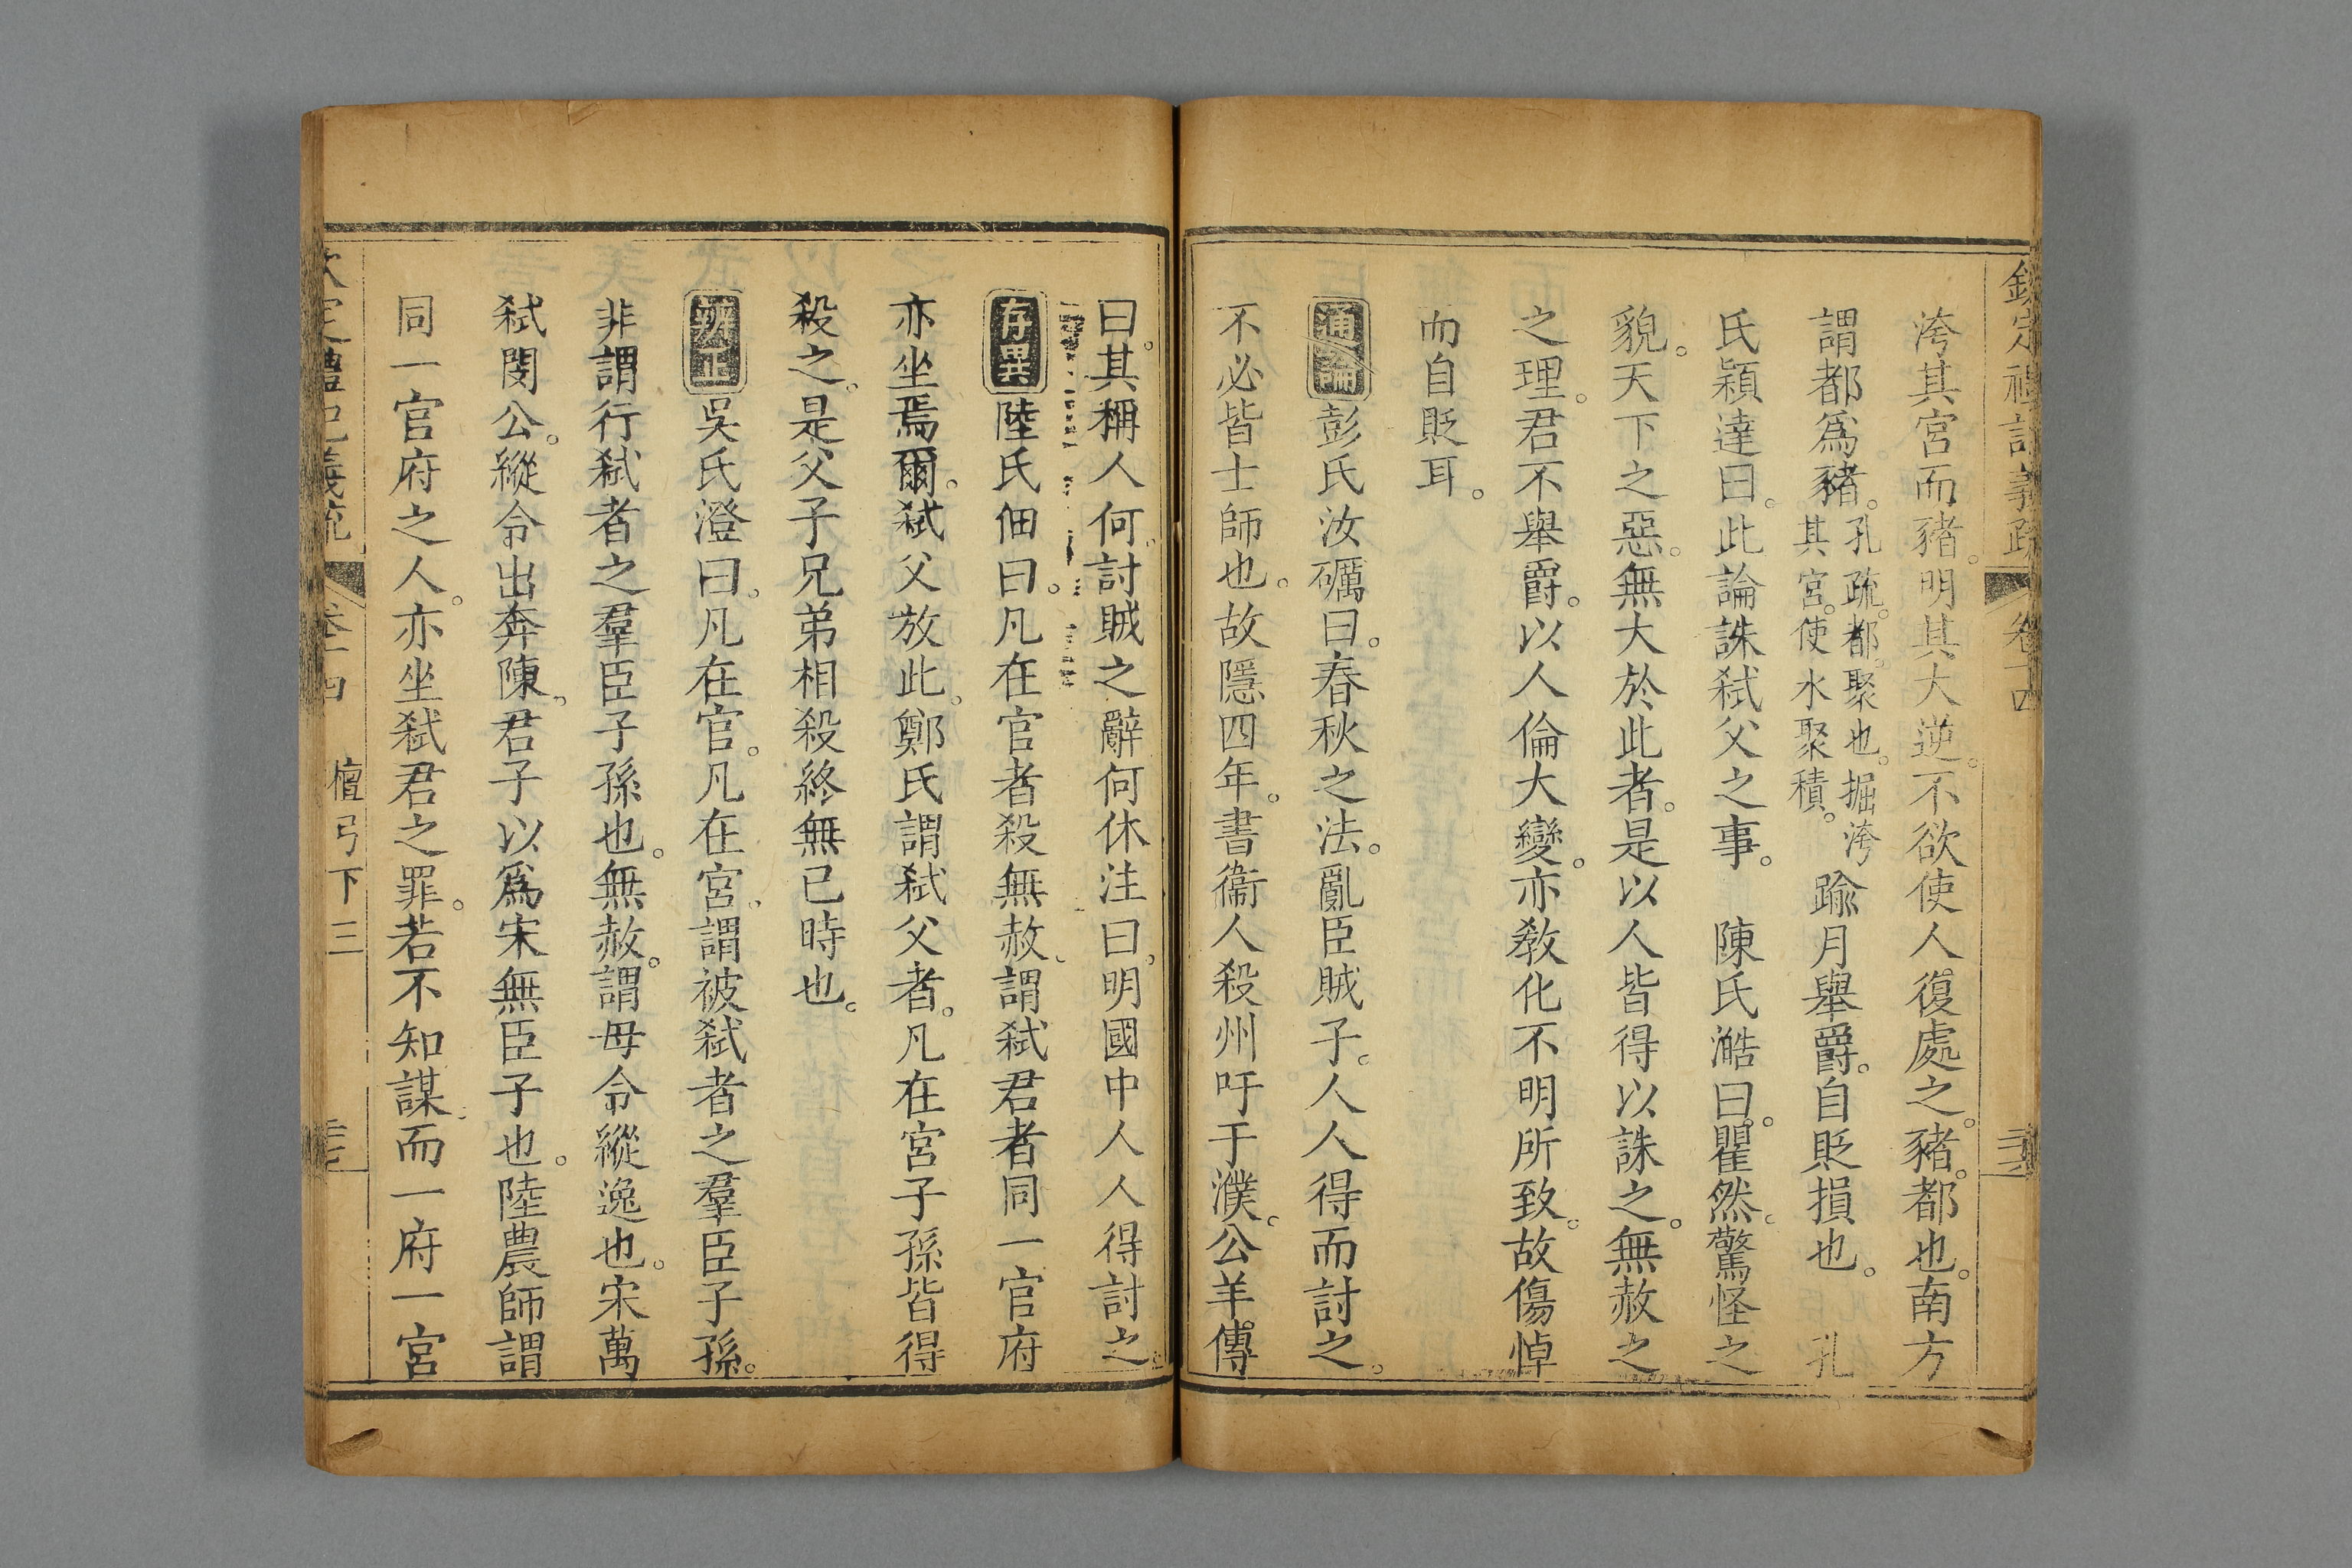 欽定禮記義疏 卷十四
洿其宮而豬。明其大逆。不欲使人復處之。豬。都也。南方
謂都爲豬。孔疏。都。聚也。掘洿其宮。使水聚積。踰月舉爵。自貶損也。 孔
氏穎達曰。此論誅弒父之事。 陳氏澔曰。瞿然。驚怪之
貌。天下之惡。無大於此者。是以人皆得以誅之。無赦之
之理。君不舉爵。以人倫大變。亦敎化不明所致。故傷悼
而自貶耳。
通論彭氏汝礪曰。春秋之法。亂臣賊子。人人得而討之。
不必皆士師也。故隱四年。書衞人殺州吁于濮。公羊傳
曰。其稱人何。討賊之辭。何休注曰。明國中人人得討之。
存異陸氏佃曰。凡在官者殺無赦。謂弒君者同一官府
亦坐焉爾。弒父放此。鄭氏謂弒父者。凡在宮子孫皆得
殺之。是父子兄弟相殺終無已時也。
辨正吳氏澄曰。凡在官。凡在宮。謂被弒者之羣臣子孫。
非謂行弒者之羣臣子孫也。無赦。謂毋令縱逸也。宋萬
弒閔公。縱令出奔陳。君子以爲宋無臣子也。陸農師謂
同一官府之人。亦坐弒君之罪。若不知謀。而一府一宮
欽定禮記義疏 卷十四 檀弓下三